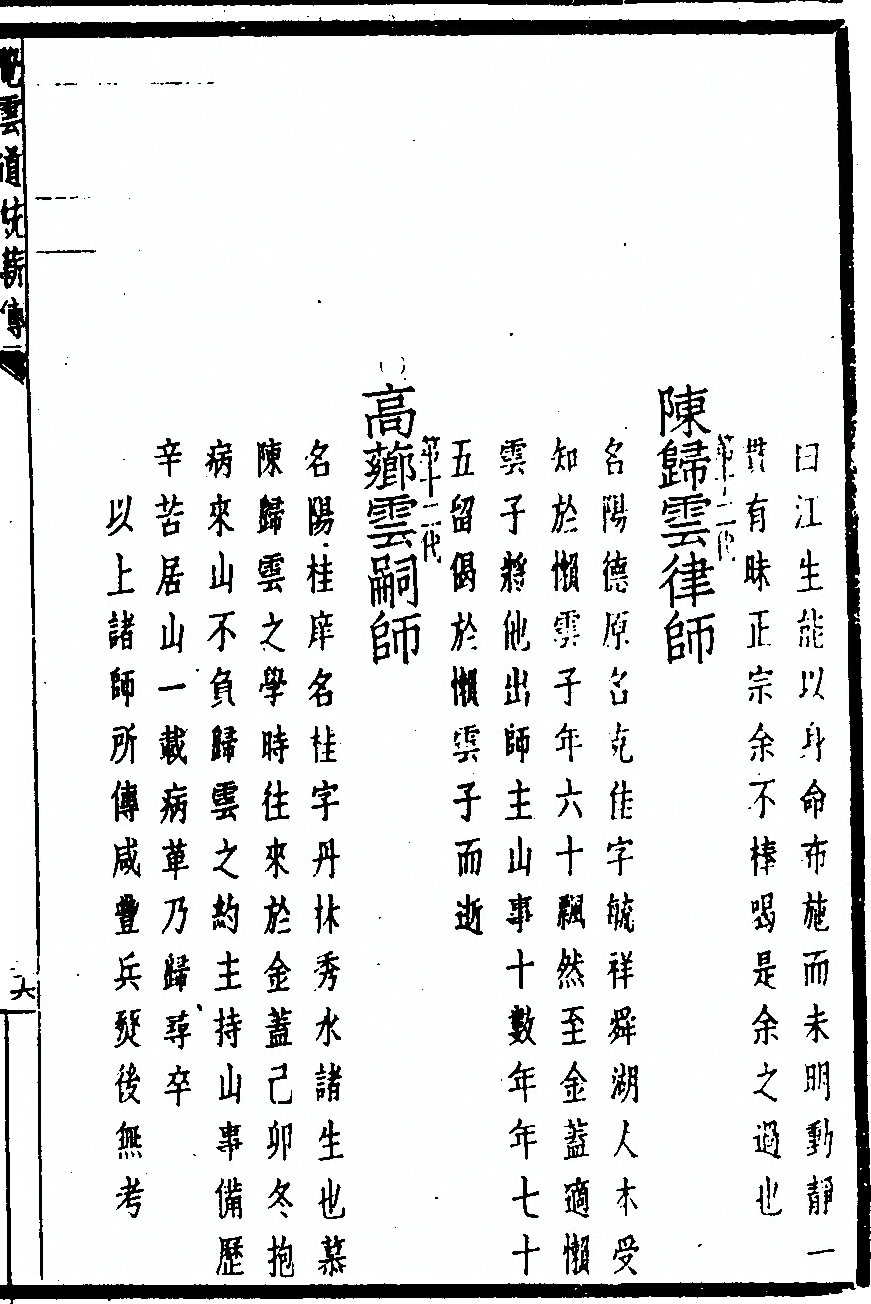 曰江生能以身命布施而未明動靜一
貫有昧正宗余不棒喝是余之過也
陳歸雲律師
第十二代
名陽德原名克佳字毓祥舜湖人本受
知於懶雲子年六十飄然至金蓋適懶
雲子將他出師主山事十數年年七十
五留偈於懶雲子而逝
高薌雲嗣師
第十二代
名陽桂庠名桂字丹林秀水諸生也慕
陳歸雲之學時往來於金蓋己卯冬抱
病來山不負歸雲之約主持山事備歷
辛苦居山一載病革乃歸尋卒
以上諸師所傳咸豐兵燹後無考
覺雲道統薪傳
六